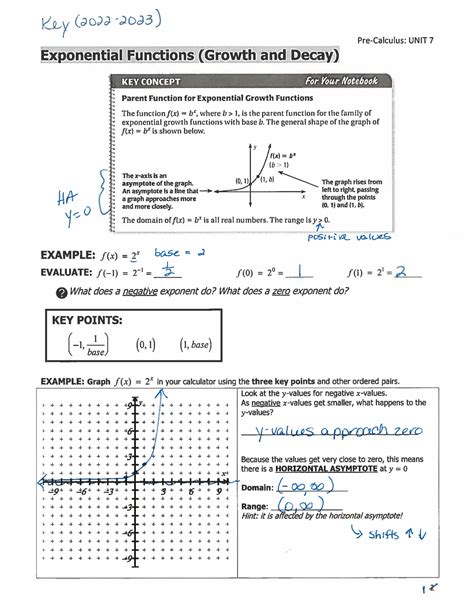 Key (2022-2023)
Pre-Calculus: UNIT 7
Exponential Functions (Growth and Decay)
KEY CONCEPT For Your Notebook
Parent Function for Exponential Growth Functions
The function f(x) = bˣ, where b > 1, is the parent function for the family of
exponential growth functions with base b. The general shape of the graph of
f(x) = bˣ is shown below.
y
f(x) = bˣ
(b > 1)
(0, 1)
(1, b)
x
The x-axis is an
asymptote of the graph.
An asymptote is a line that
a graph approaches more
and more closely.
The graph rises from
left to right, passing
through the points
(0, 1) and (1, b).
HA
y=0
The domain of f(x) = bˣ is all real numbers. The range is y > 0.
positive values
EXAMPLE: f(x) = 2ˣ base = 2
EVALUATE: f(−1) = 2⁻¹ = 1/2 f(0) = 2⁰ = 1 f(1) = 2¹ = 2
? What does a negative exponent do? What does a zero exponent do?
KEY POINTS:
(−1, 1/base) (0,1) (1, base)
EXAMPLE: Graph f(x) = 2ˣ in your calculator using the three key points and other ordered pairs.
Look at the y-values for negative x-values.
As negative x-values get smaller, what happens to the
y-values?
y-values approach zero
Because the values get very close to zero, this means
there is a HORIZONTAL ASYMPTOTE at y = 0
Domain: (-∞,∞)
Range: (0,∞)
Hint: it is affected by the horizontal asymptote!
↳ shifts ↑ ↓
9
y
3
x
-9 -6 -3 3 6 9
-3
-9